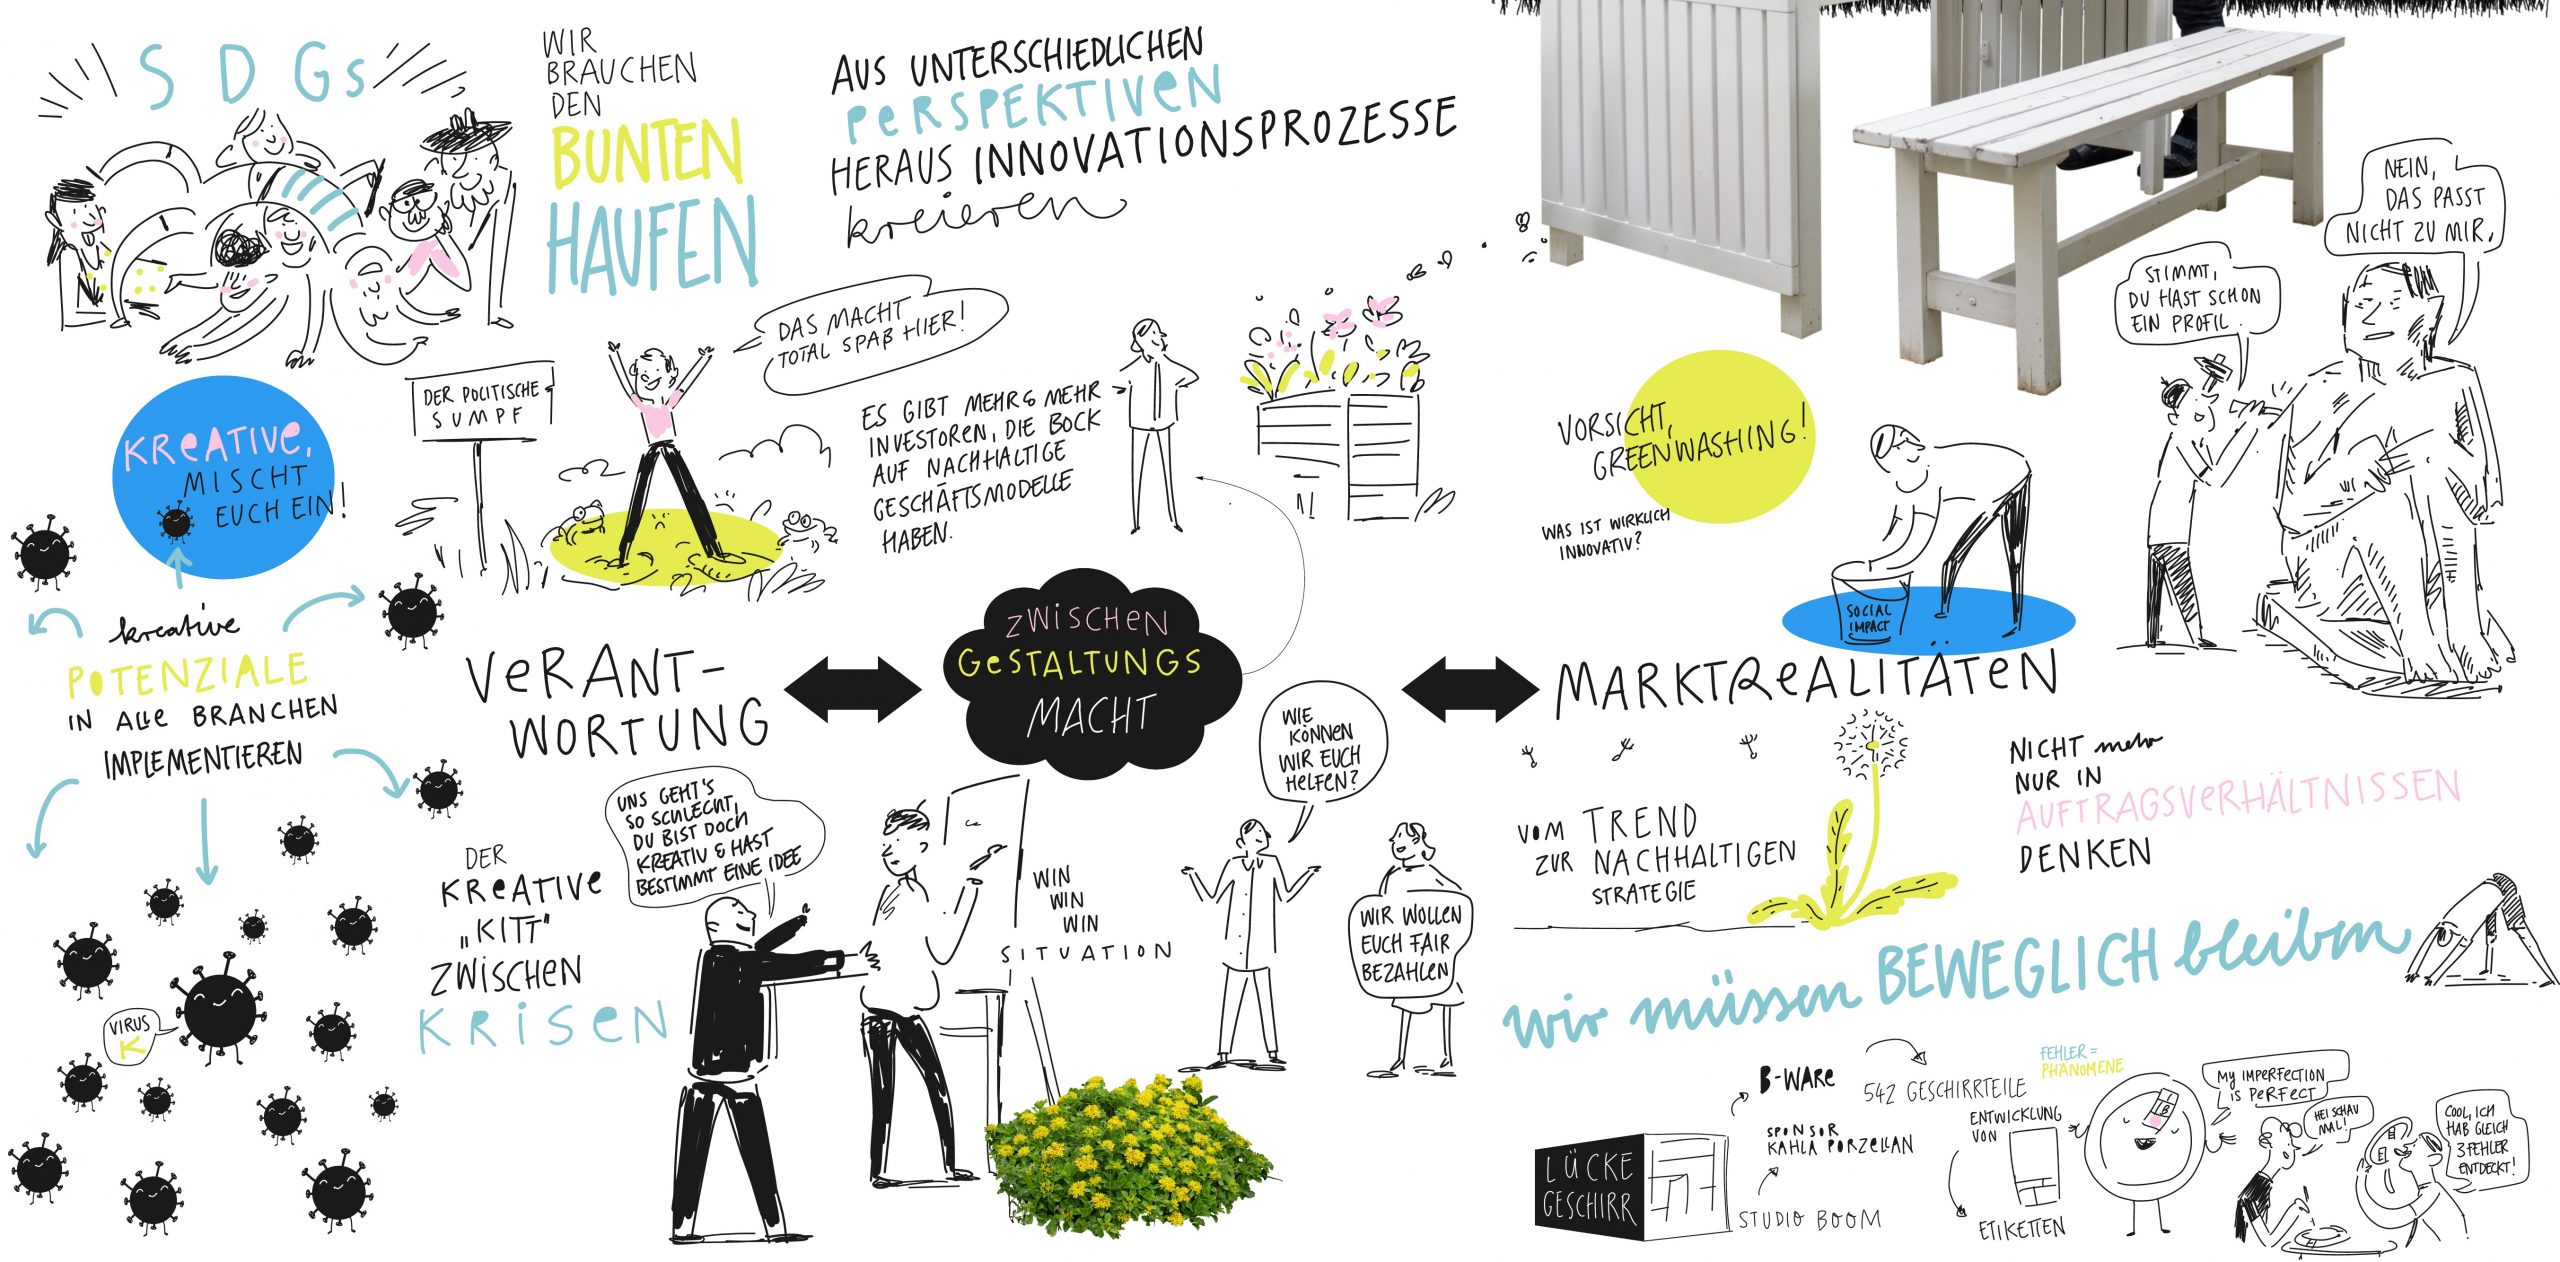 SDGs
WIR
BRAUCHEN
DEN
BUNTEN
HAUFEN
AUS UNTERSCHIEDLICHEN
PERSPEKTIVEN
HERAUS INNOVATIONSPROZESSE
kreieren
KREATIVE,
MISCHT
EUCH EIN!
DER POLITISCHE
SUMPF
DAS MACHT
TOTAL SPAß HIER!
ES GIBT MEHR & MEHR
INVESTOREN, DIE BOCK
AUF NACHHALTIGE
GESCHÄFTSMODELLE
HABEN.
VORSICHT,
GREENWASHING!
WAS IST WIRKLICH
INNOVATIV?
SOCIAL
IMPACT
STIMMT,
DU HAST SCHON
EIN PROFIL.
NEIN,
DAS PASST
NICHT ZU MIR.
kreative
POTENZIALE
IN ALLE BRANCHEN
IMPLEMENTIEREN
VIRUS
K
VERANT-
WORTUNG
ZWISCHEN
GESTALTUNGS
MACHT
MARKTREALITÄTEN
DER
KREATIVE
„KITT"
ZWISCHEN
KRISEN
UNS GEHT'S
SO SCHLECHT,
DU BIST DOCH
KREATIV & HAST
BESTIMMT EINE IDEE
WIN
WIN
WIN
SITUATION
WIE
KÖNNEN
WIR EUCH
HELFEN?
WIR WOLLEN
EUCH FAIR
BEZAHLEN
VOM TREND
ZUR NACHHALTIGEN
STRATEGIE
NICHT mehr
NUR IN
AUFTRAGSVERHÄLTNISSEN
DENKEN
wir müssen BEWEGLICH bleiben
LÜCKE
GESCHIRR
B-WARE
SPONSOR
KAHLA PORZELLAN
STUDIO BOOM
542 GESCHIRRTEILE
ENTWICKLUNG
VON
ETIKETTEN
FEHLER =
PHÄNOMENE
B
MY IMPERFECTION
IS PERFECT
HEI SCHAU
MAL!
COOL, ICH
HAB GLEICH
3 FEHLER
ENTDECKT!